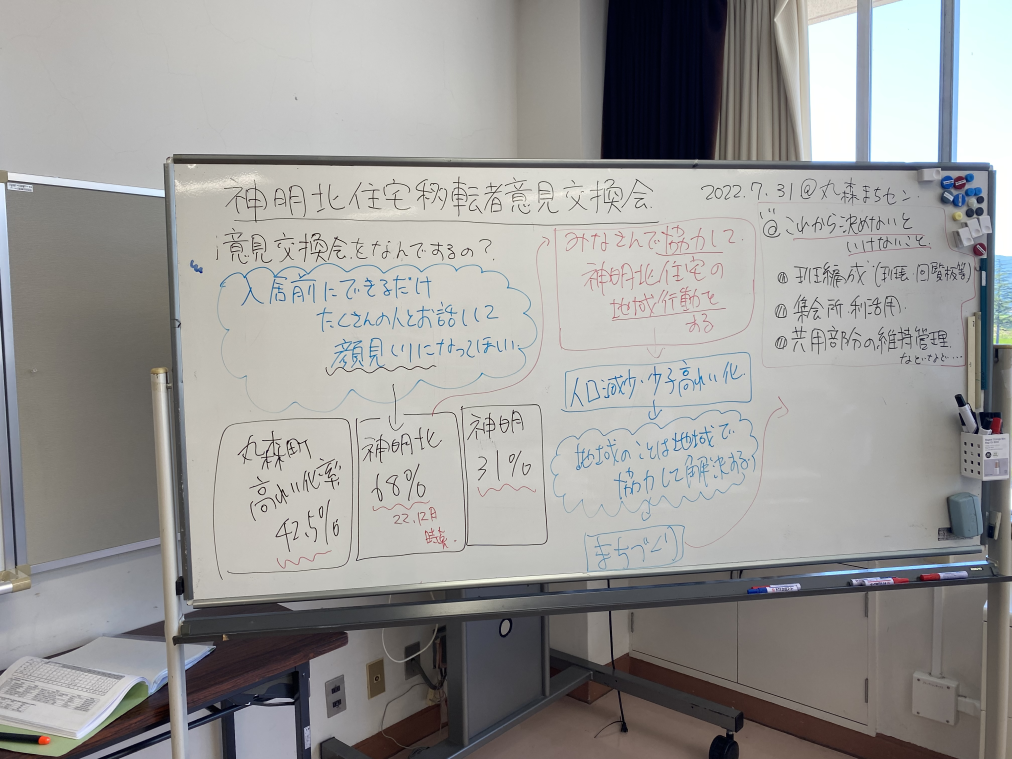 神明北住宅移転者意見交換会
2022.7.31@丸森まちセン
意見交換会をなんでするの？
入居前にできるだけ
たくさんの人とお話しして
顔見しりになってほしい
丸森町
高れい化率
42.5%
神明北
68%
22.12月
時点
神明
31%
みなさんで協力して
神明北住宅の
地域行動を
する
人口減少・少子高れい化
地域のことは地域で
協力して解決する
まちづくり
@これから決めないと
いけないこと
班編成(班長、回覧板等)
集会所利活用
共用部分の維持管理
などなど…